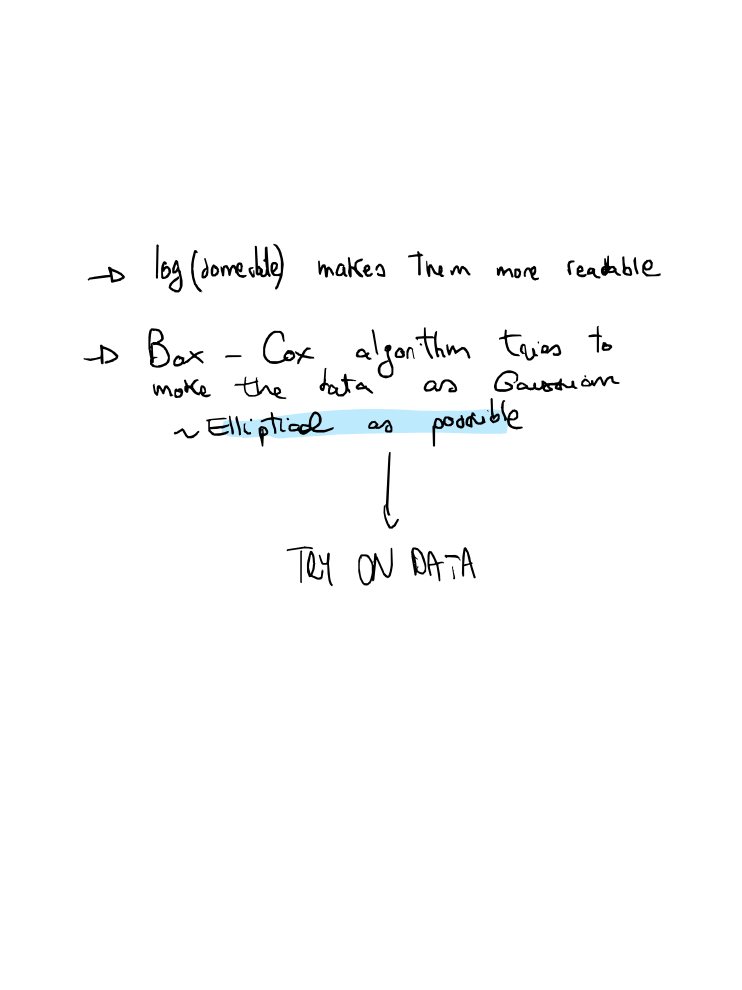 → log() makes them more readable
→ Box - Cox algorithm tries to
make the data as Gaussian
~ Elliptical as possible
↓
TRY ON DATA